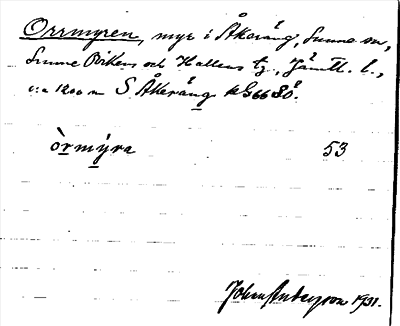 Orrmyren, myr i Åkeräng, Sunne sn,
Sunne Oviken och Hallens tg, Jämtl. l.,
c:a 1200 m S Åkeräng
òrmýra 53
John Anderson 1931.